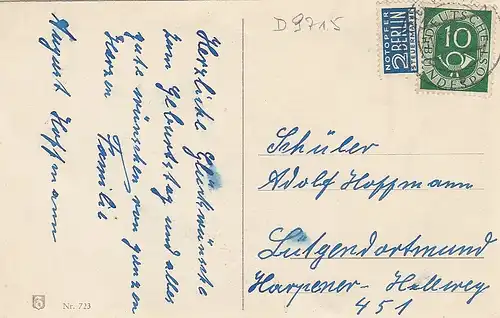 D 9715
NOTOPFER
2 BERLIN
STEUERMARKE
DEUTSCHE
BUNDESPOST
10
Herzliche Glückwünsche
zum Geburtstag und alles
gute wünschen von ganzen
Herzen Familie
August Hoffmann
Schüler
Adolf Hoffmann
Lütgendortmund
Harpener-Hellweg
451
Nr. 723